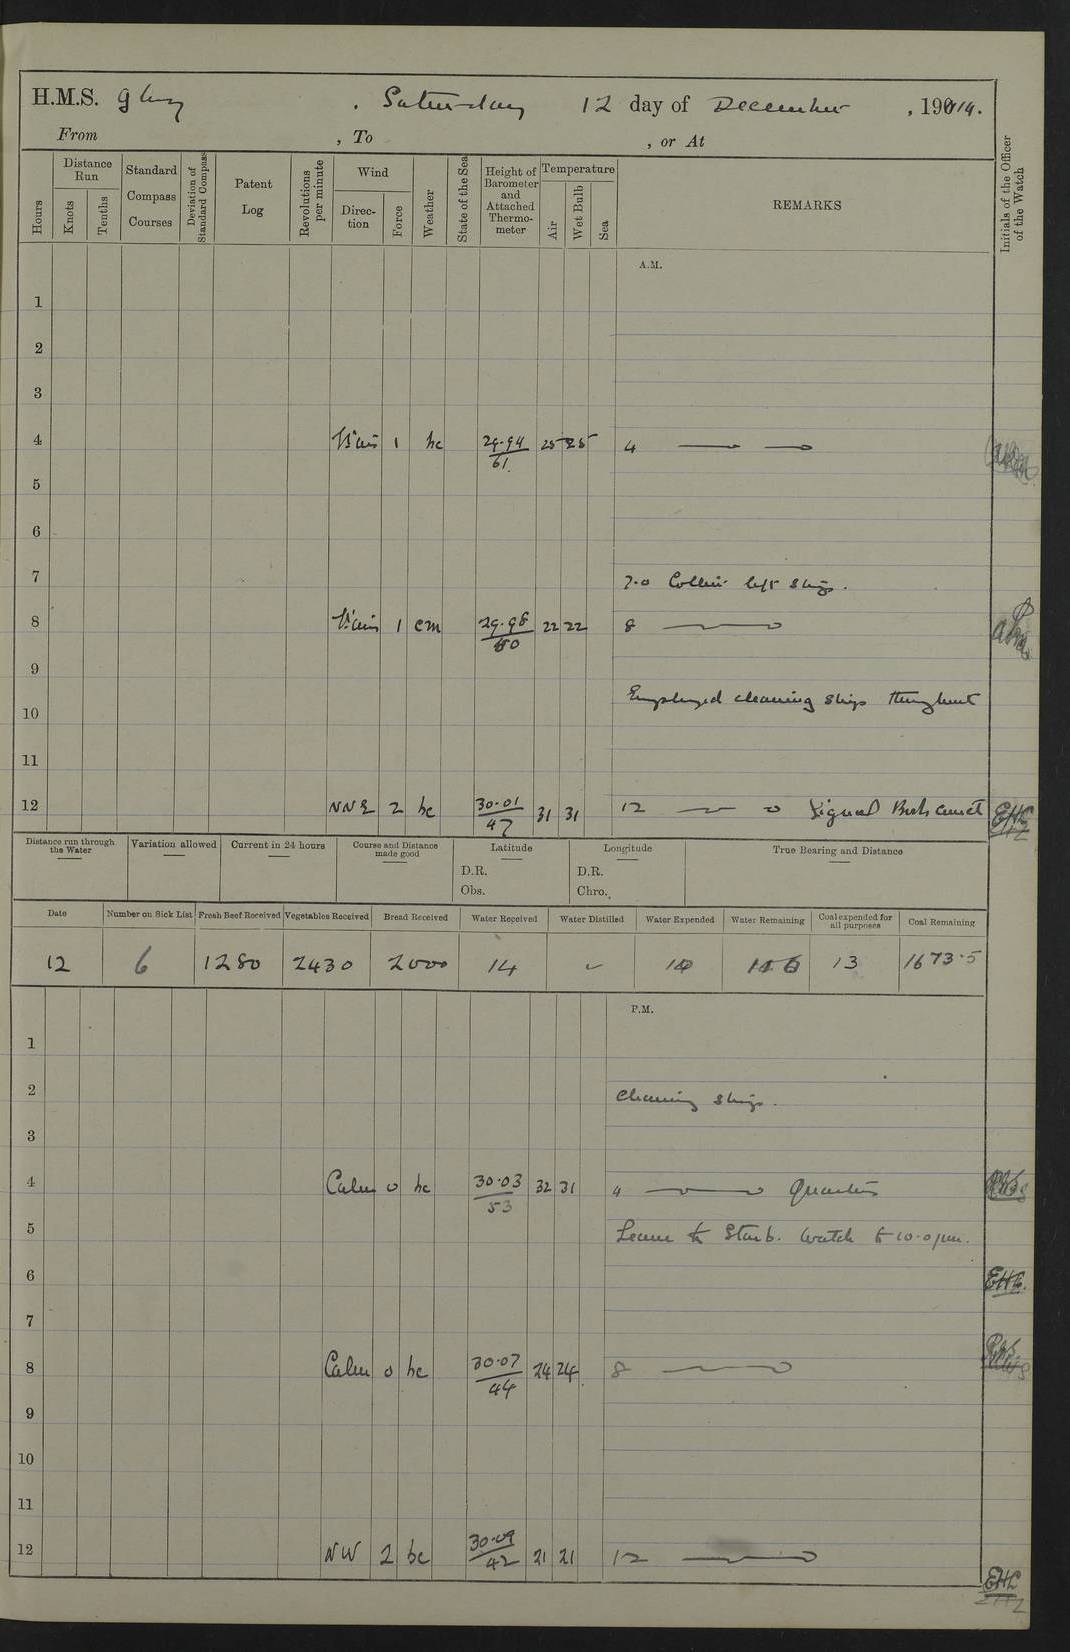 H.M.S. Glory, Saturday 12 day of December, 1914.
From , To , or At
Hours
Distance Run
Knots
Tenths
Standard Compass Courses
Deviation of Standard Compass
Patent Log
Revolutions per minute
Wind
Direction
Force
Weather
State of the Sea
Height of Barometer and Attached Thermometer
Temperature
Air
Wet Bulb
Sea
REMARKS
Initials of the Officer of the Watch
A.M.
1
2
3
4 1 bc 29.94 61 25 25 4
5
6
7 7.0 Collier left ship.
8 1 cm 29.98 50 22 22 8
9
Employed cleaning ship throughout
10
11
12 NNE 2 bc 30.01 47 31 31 12 EHL
Distance run through the Water
Variation allowed
Current in 24 hours
Course and Distance made good
Latitude
D.R.
Obs.
Longitude
D.R.
Chro.
True Bearing and Distance
Date Number on Sick List Fresh Beef Received Vegetables Received Bread Received Water Received Water Distilled Water Expended Water Remaining Coal expended for all purposes Coal Remaining
12 6 1280 2430 2000 14 13 1673.5
P.M.
1
2 Cleaning ship.
3
4 Calm 0 bc 30.03 53 32 31 4 Quarters
5 Leave to Starb. Watch to 10.0 pm.
6
7
8 Calm 0 bc 30.07 44 24 24 8
9
10
11
12 NW 2 bc 30.09 42 21 21 12 EHL